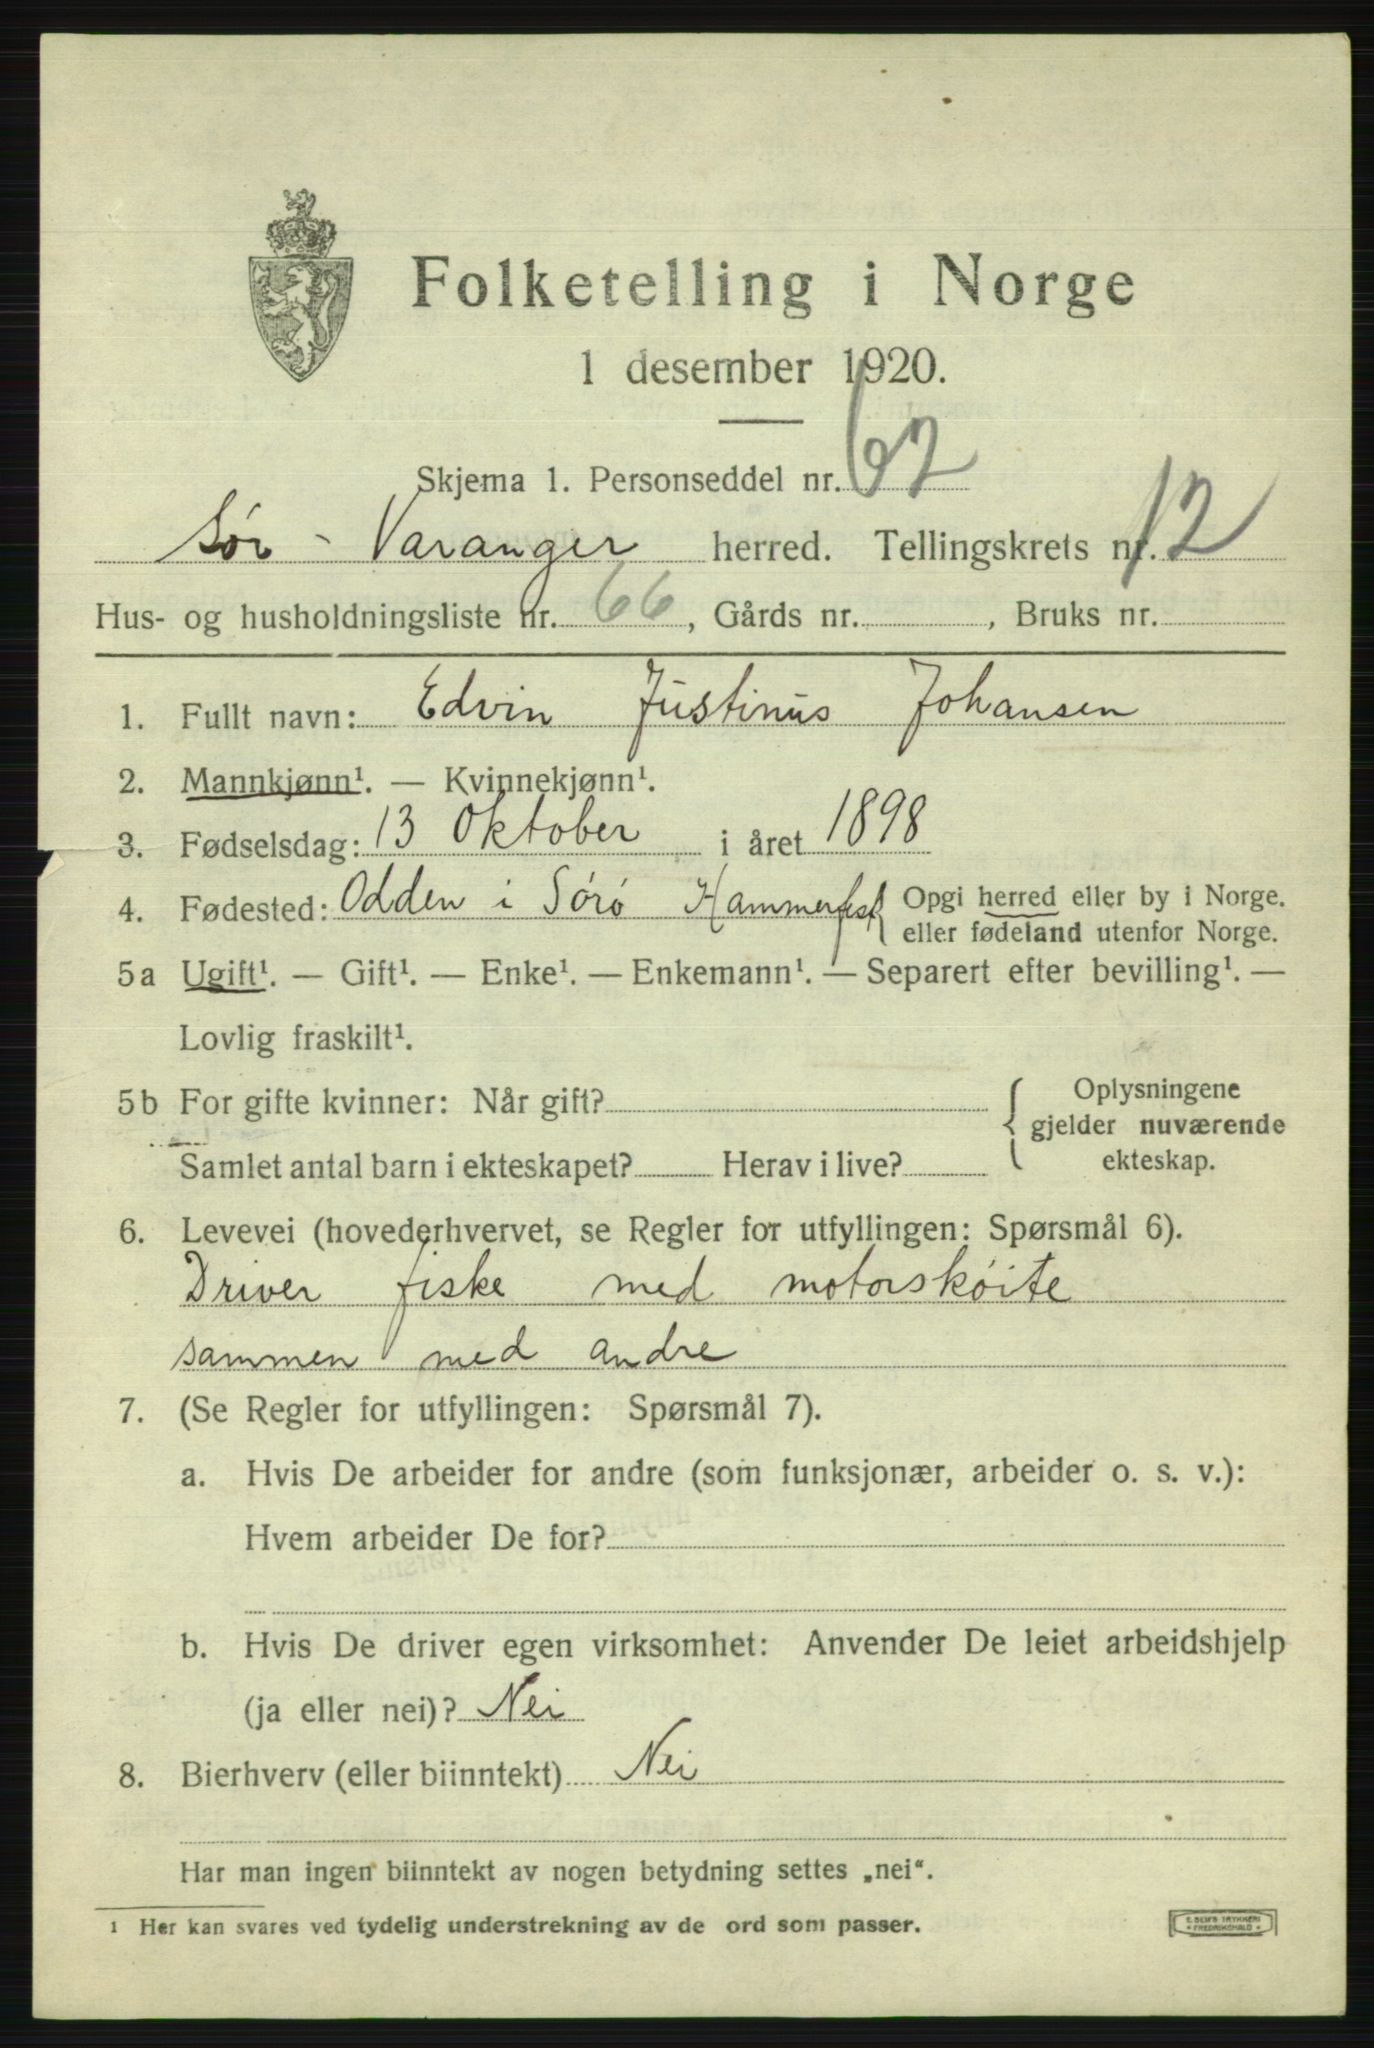 Folketelling i Norge
1 desember 1920.
Skjema 1. Personseddel nr. 62
Sør-Varanger herred. Tellingskrets nr. 12
Hus- og husholdningsliste nr. 66, Gårds nr. , Bruks nr.
1. Fullt navn: Edvin Justinus Johansen
2. Mannkjønn¹. — Kvinnekjønn¹.
3. Fødselsdag: 13 Oktober i året 1898
4. Fødested: Odden i Sørø Hammerfest { Opgi herred eller by i Norge.
eller fødeland utenfor Norge.
5a Ugift¹. — Gift¹. — Enke¹. — Enkemann¹. — Separert efter bevilling¹. —
Lovlig fraskilt¹.
5b For gifte kvinner: Når gift? { Oplysningene
gjelder nuværende
ekteskap.
Samlet antal barn i ekteskapet? Herav i live?
6. Levevei (hovederhvervet, se Regler for utfyllingen: Spørsmål 6).
Driver fiske med motorskøite
sammen med andre
7. (Se Regler for utfyllingen: Spørsmål 7).
a. Hvis De arbeider for andre (som funksjonær, arbeider o. s. v.):
Hvem arbeider De for?
b. Hvis De driver egen virksomhet: Anvender De leiet arbeidshjelp
(ja eller nei)? Nei
8. Bierhverv (eller biinntekt) Nei
Har man ingen biinntekt av nogen betydning settes „nei“.
¹ Her kan svares ved tydelig understrekning av de ord som passer.